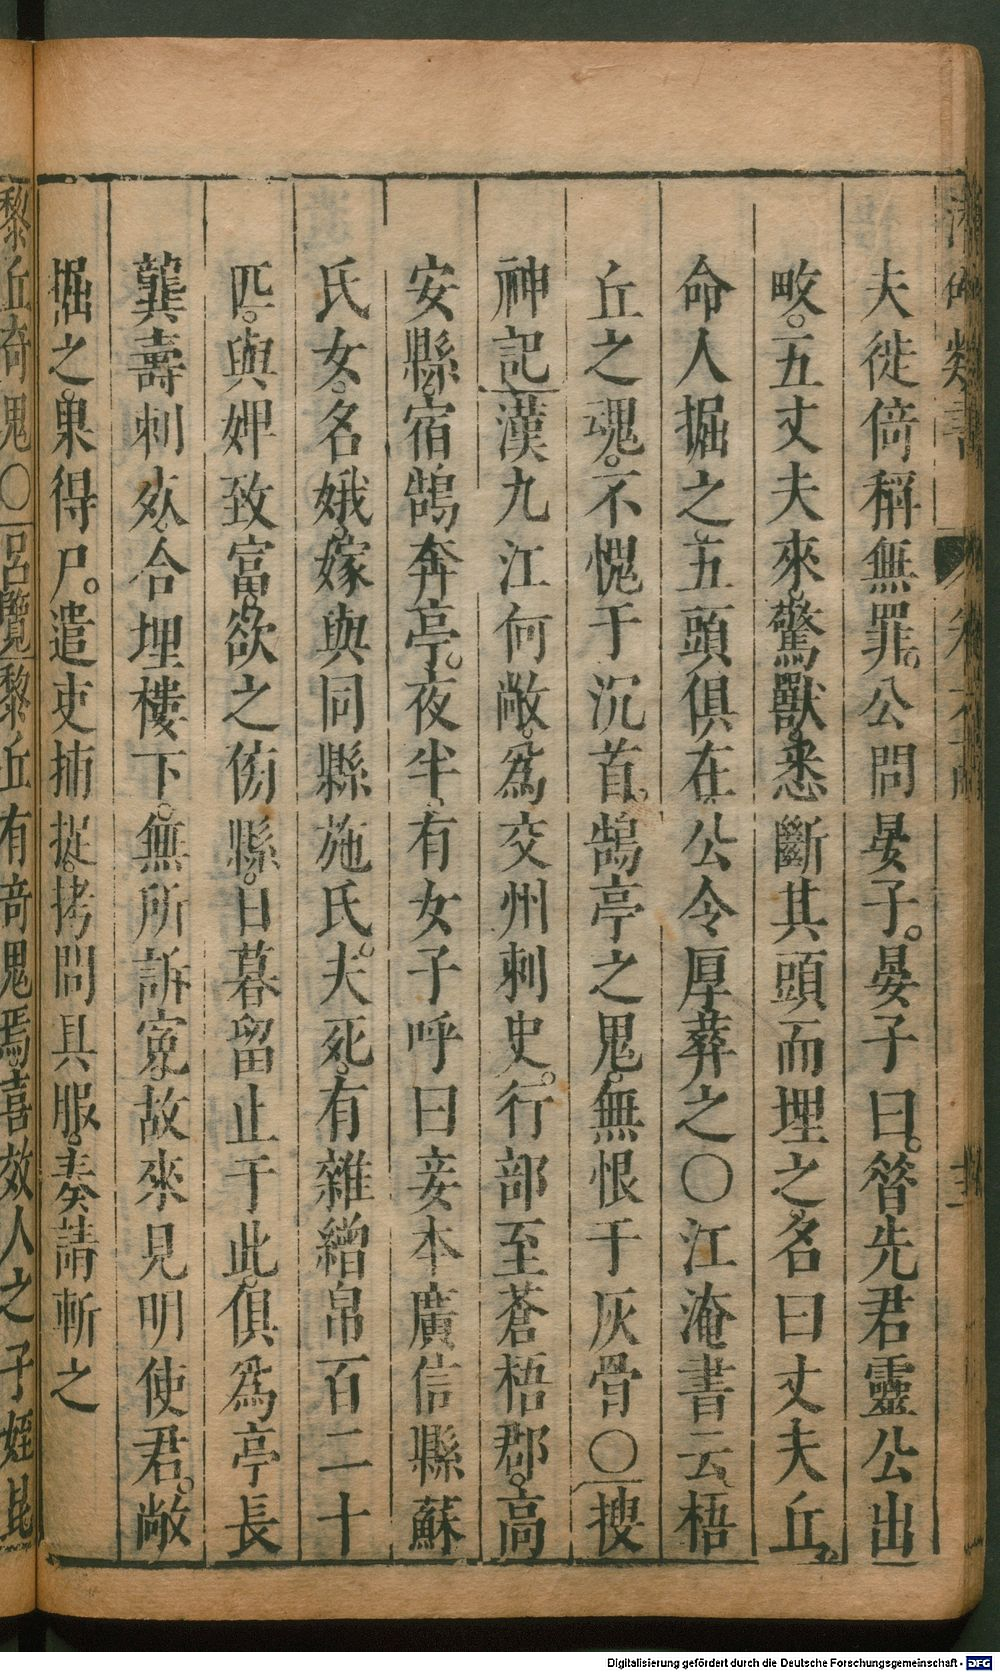 夫徙倚稱無罪。公問晏子。晏子曰。昝先君靈公出
畋。五丈夫來。驚獸。悉斷其頭而埋之。名曰丈夫丘。
命人掘之。五頭俱在。公令厚葬之〇江淹書云。梧
丘之魂。不愧于沉首。鵠亭之鬼。無恨于灰骨〇搜
神記漢九江何敞。爲交州刺史。行部至蒼梧郡。高
安縣。宿鵠奔亭。夜半。有女子呼曰妾本廣信縣蘇
氏女。名娥。嫁與同縣施氏。夫死。有雜繒帛百二十
匹。與婢致富。欲之傍縣。日暮留止于此。俱爲亭長
龔壽刺死。合埋樓下。無所訴寃。故來見明使君。敞
掘之。果得尸。遣吏捕捉。拷問具服。奏請斬之
黎丘奇鬼〇呂覽黎丘有奇鬼焉。喜效人之子姪昆
Digitalisierung gefördert durch die Deutsche Forschungsgemeinschaft - DFG